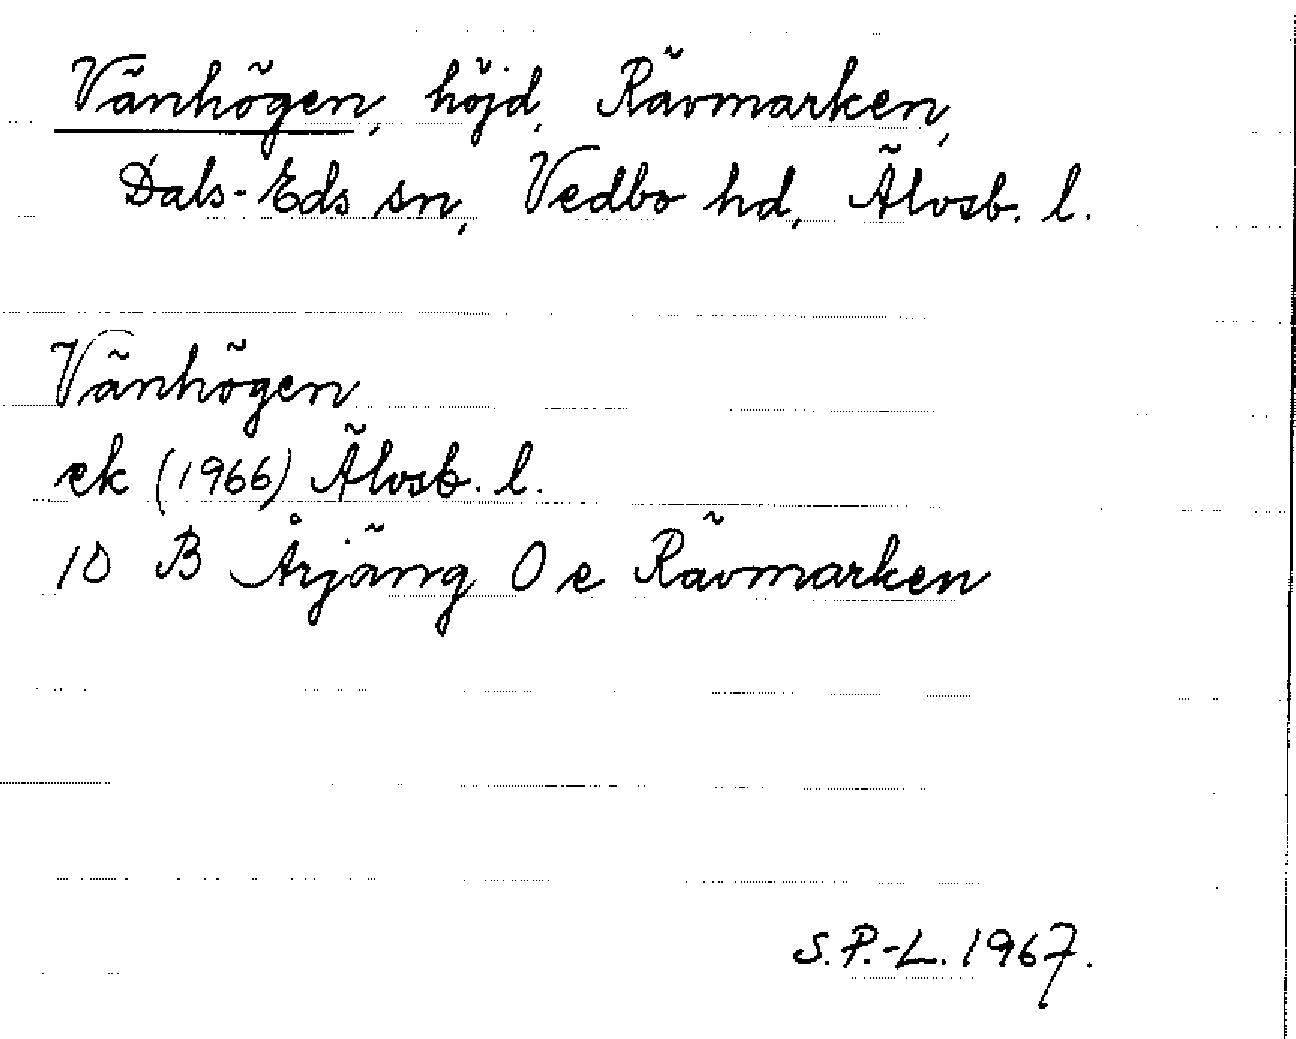 Vänhögen, höjd, Rävmarken,
Dals-Eds sn, Vedbo hd, Älvsb. l.
Vänhögen
ek (1966) Älvsb. l.
10 B Årjäng 0 e Rävmarken
S.P.-L. 1967.